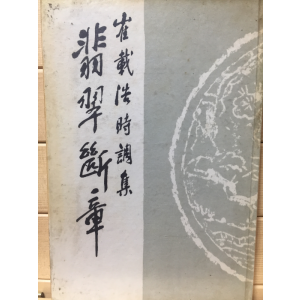 崔載浩時調集
翡翠斷章